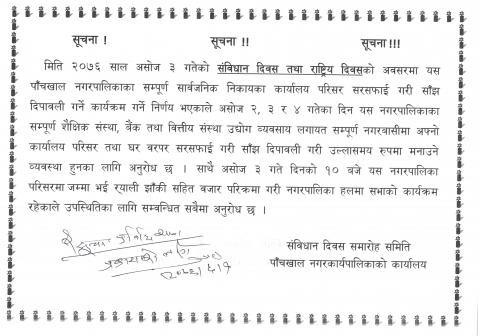 सूचना ! सूचना !! सूचना !!!
मिति २०७६ साल असोज ३ गतेको संविधान दिवस तथा राष्ट्रिय दिवसको अवसरमा यस
पाँचखाल नगरपालिकाका सम्पूर्ण सार्वजनिक निकायका कार्यालय परिसर सरसफाई गरी साँझ
दिपावली गर्ने कार्यक्रम गर्ने निर्णय भएकाले असोज २, ३ र ४ गतेका दिन यस नगरपालिकाका
सम्पूर्ण शैक्षिक संस्था, बैंक तथा वित्तीय संस्था उद्योग व्यवसाय लगायत सम्पूर्ण नगरवासीमा अफ्नो
कार्यालय परिसर तथा घर वरपर सरसफाई गरी साँझ दिपावली गरी उल्लासमय रुपमा मनाउने
व्यवस्था हुनका लागि अनुरोध छ । साथै असोज ३ गते दिनको १० बजे यस नगरपालिका
परिसरमा जम्मा भई र्‍याली झाँकी सहित बजार परिक्रमा गरी नगरपालिका हलमा सभाको कार्यक्रम
रहेकाले उपस्थितिका लागि सम्वन्धित सबैमा अनुरोध छ ।
संविधान दिवस समारोह समिति
पाँचखाल नगरकार्यपालिकाको कार्यालय